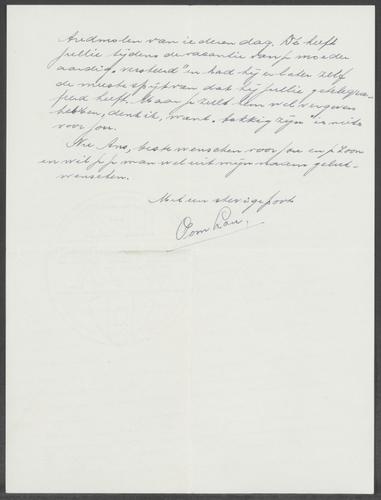 van iederen dag. Dé heeft
jullie tijdens de vacantie van je moeder
aardig "versteld" en had hij er later zelf
de meeste spijt van dat hij jullie getelegra-
feerd heeft. Maar je zult hem wel vergeven
hebben, denk ik, want "bokkig zijn" is niets
voor jou.
Nu Ans, beste wenschen voor jou en je zoon
en wil je je man wel uit mijn naam geluk-
wenschen.
Met een stevige poot
Oom Lou.